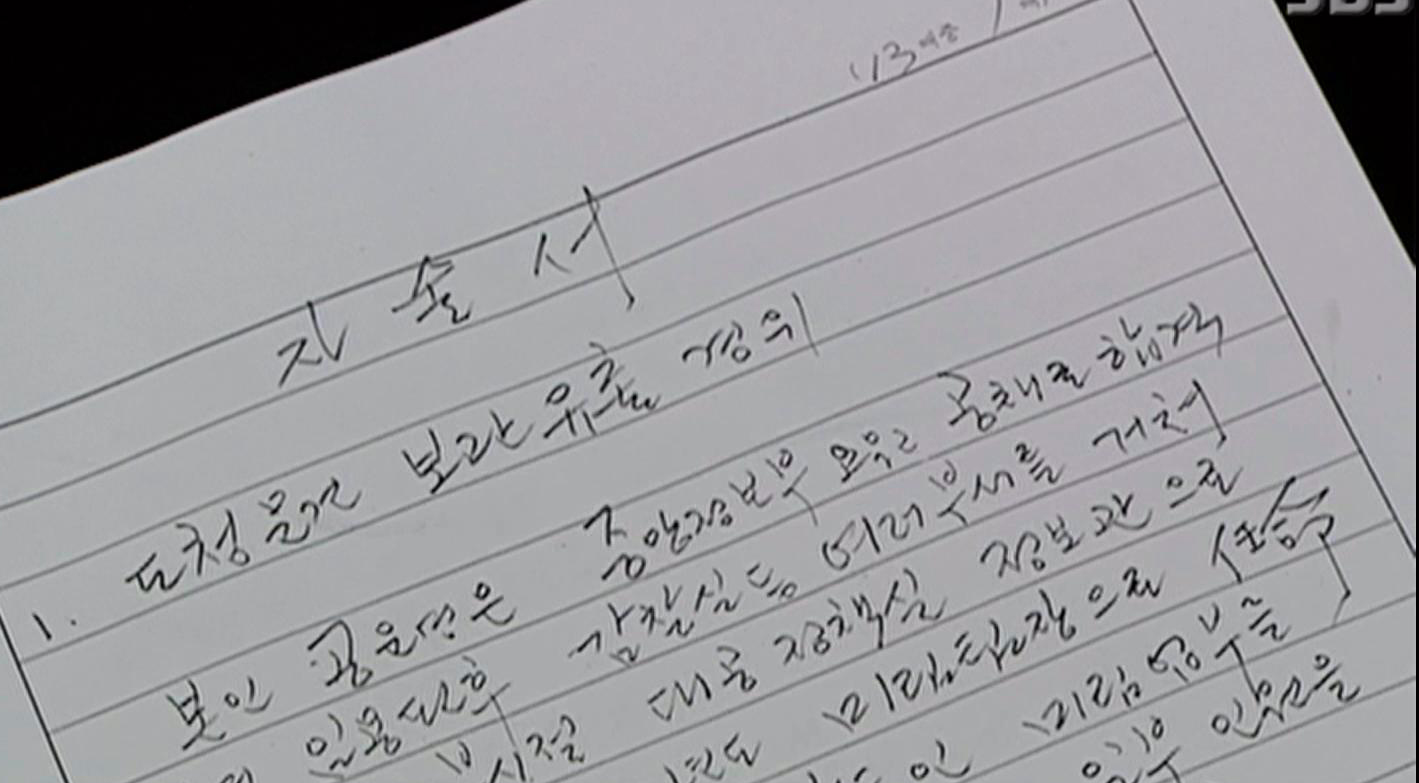 SBS
자 술 서
1. 도청물건 보관 유출 경위
본인 공운영은 중앙정보부 요원 공채로 합격
임용된 후 감찰실 등 여러 부서를 거쳐
시절 대공정책실 정보관으로
미림팀장으로 선승
인 미림업무를
인원을